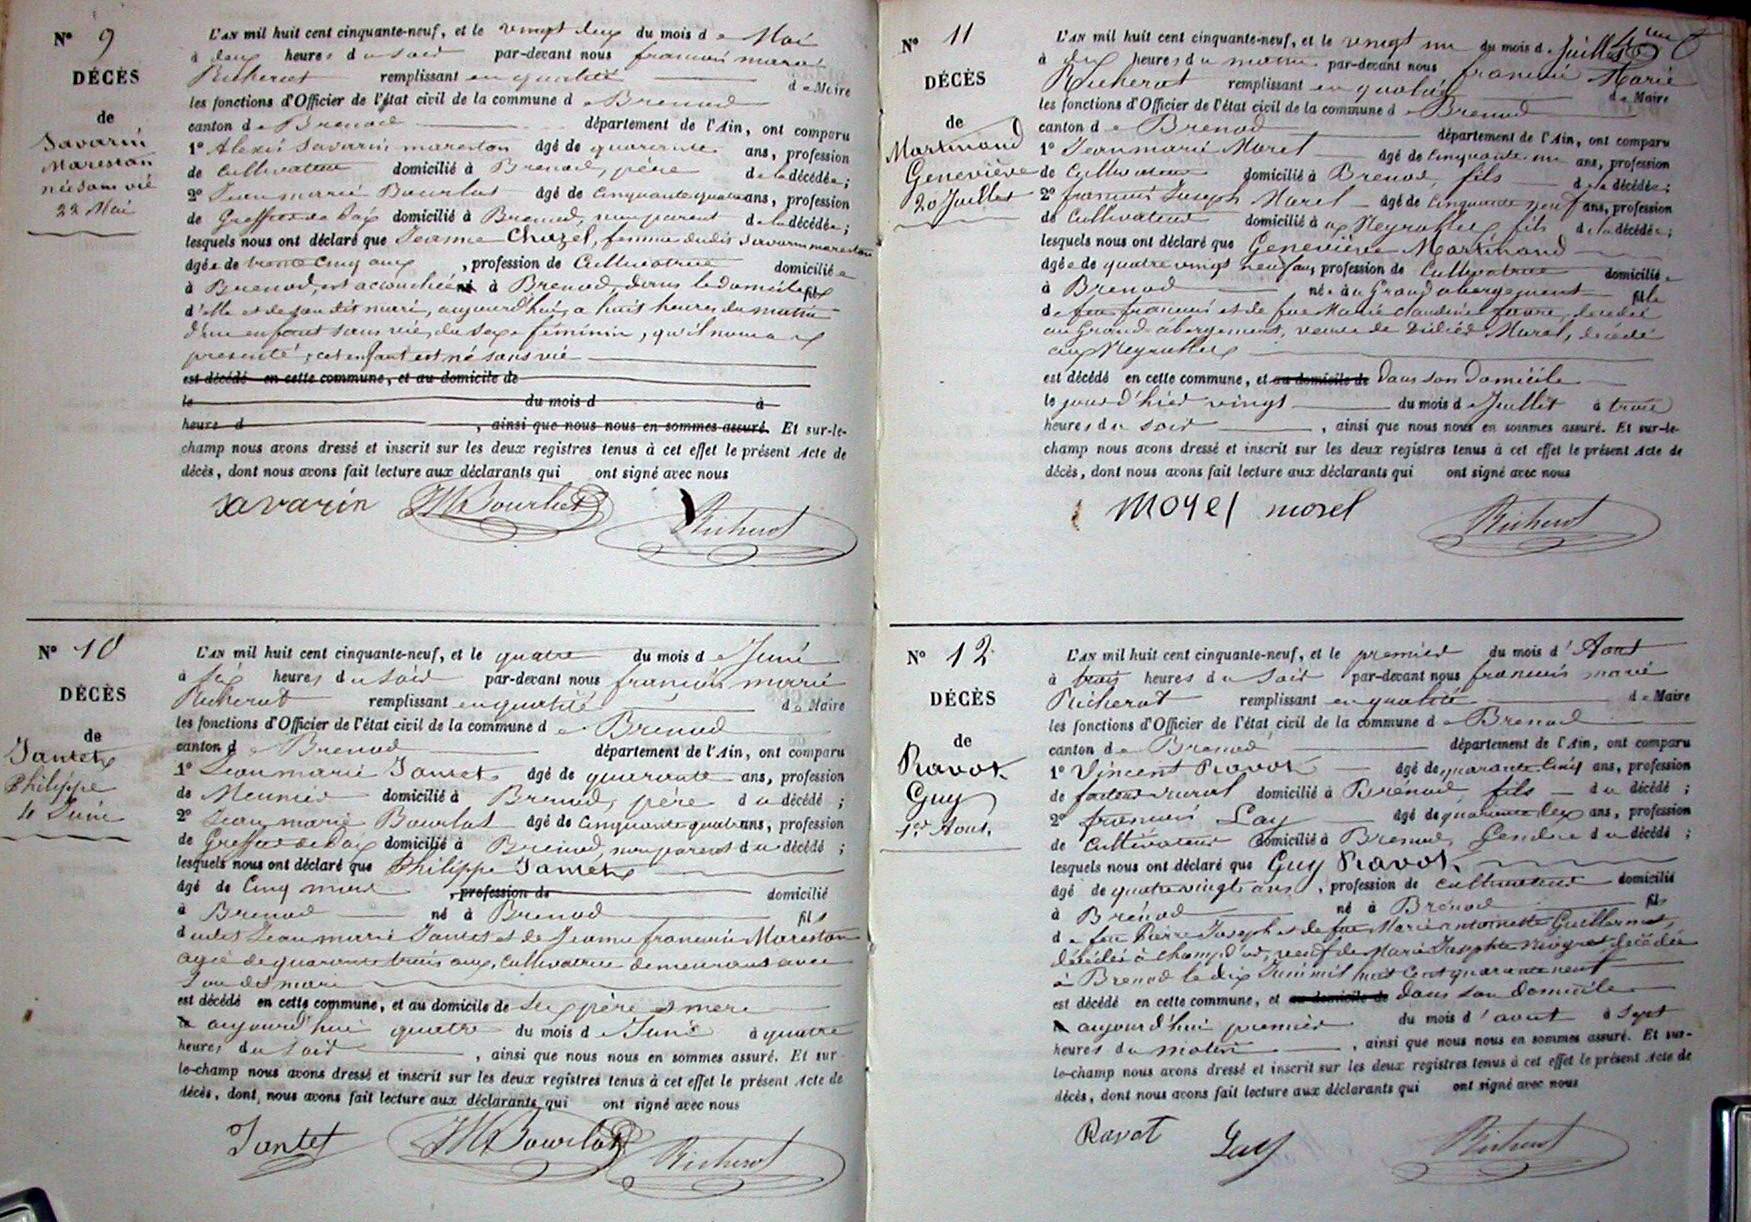 N° 9
DÉCÈS
de
Savarin
Mareston
née sans vie
22 Mai
L'AN mil huit cent cinquante-neuf, et le vingt deux du mois de Mai
à deux heures du soir par-devant nous françois marie
Richerot remplissant en qualité de Maire
les fonctions d'Officier de l'état civil de la commune de Brenod
canton de Brenod département de l'Ain, ont comparu
1° Alexis Savarin mareston âgé de quarante ans, profession
de Cultivateur domicilié à Brenod, père de la décédée;
2° Jean marie Bourlot âgé de Cinquante quatre ans, profession
de Greffier de Paix domicilié à Brenod, non parent de la décédée;
lesquels nous ont déclaré que Jeanne Chazel, femme dudit Savarin mareston
âgée de trente cinq ans, profession de Cultivatrice domiciliée
à Brenod, est accouchée à Brenod, dans le domicile
d'elle et de son dit mari, aujourd'hui, a huit heures du matin
d'un enfant sans vie, du sexe féminin, qu'il nous a
présenté; cet enfant est né sans vie
est décédé en cette commune, et au domicile de
le du mois d à
heure d , ainsi que nous nous en sommes assuré. Et sur-le-
champ nous avons dressé et inscrit sur les deux registres tenus à cet effet le présent Acte de
décès, dont nous avons fait lecture aux déclarants qui ont signé avec nous
Savarin JM Bourlot Richerot
N° 10
DÉCÈS
de
Jantet
Philippe
4 Juin
L'AN mil huit cent cinquante-neuf, et le quatre du mois de Juin
à six heures du soir par-devant nous françois marie
Richerot remplissant en qualité de Maire
les fonctions d'Officier de l'état civil de la commune de Brenod
canton de Brenod département de l'Ain, ont comparu
1° Jean marie Jantet âgé de quarante ans, profession
de Meunier domicilié à Brenod, père du décédé;
2° Jean marie Bourlot âgé de Cinquante quatre ans, profession
de Greffier de Paix domicilié à Brenod, non parent du décédé;
lesquels nous ont déclaré que Philippe Jantet
âgé de Cinq mois, profession de domicilié
à Brenod né à Brenod fils
dudit Jean marie Jantet et de Jeanne françoise Mareston
agée de quarante trois ans, Cultivatrice demeurant avec
son dit mari
est décédé en cette commune, et au domicile de ses père et mere
le aujourd'hui quatre du mois de Juin à quatre
heures du soir, ainsi que nous nous en sommes assuré. Et sur
le-champ nous avons dressé et inscrit sur les deux registres tenus à cet effet le présent Acte de
décès, dont nous avons fait lecture aux déclarants qui ont signé avec nous
Jantet JM Bourlot Richerot
N° 11
DÉCÈS
de
Martinand
Geneviève
20 Juillet
L'AN mil huit cent cinquante-neuf, et le vingt un du mois de Juillet
à dix heures du matin par-devant nous françois Marie
Richerot remplissant en qualité de Maire
les fonctions d'Officier de l'état civil de la commune de Brenod
canton de Brenod département de l'Ain, ont comparu
1° Jean marie Morel âgé de Cinquante un ans, profession
de Cultivateur domicilié à Brenod, fils de la décédée;
2° françois Joseph Morel âgé de Cinquante neuf ans, profession
de Cultivateur domicilié aux Neyrolles, fils de la décédée;
lesquels nous ont déclaré que Geneviève Martinand
âgée de quatre vingt neuf ans, profession de Cultivatrice domiciliée
à Brenod née au Grand abergement fille
de feu françois et de feue Marie Claudine favre, décédés
au Grand abergement, veuve de Didier Morel, décédé
aux Neyrolles
est décédé en cette commune, et au domicile de dans son Domicile
le jour d'hier vingt du mois de Juillet à trois
heures du soir, ainsi que nous nous en sommes assuré. Et sur-le-
champ nous avons dressé et inscrit sur les deux registres tenus à cet effet le présent Acte de
décès, dont nous avons fait lecture aux déclarants qui ont signé avec nous
Morel morel Richerot
N° 12
DÉCÈS
de
Ravot
Guy
1er Aout
L'AN mil huit cent cinquante-neuf, et le premier du mois d'Aout
à trois heures du soir par-devant nous francois marie
Richerot remplissant en qualité de Maire
les fonctions d'Officier de l'état civil de la commune de Brenod
canton de Brenod département de l'Ain, ont comparu
1° Vincent Ravot âgé de quarante Cinq ans, profession
de facteur rural domicilié à Brenod, fils du décédé;
2° françois Lay âgé de quarante deux ans, profession
de Cultivateur domicilié à Brenod, Gendre du décédé;
lesquels nous ont déclaré que Guy Ravot
âgé de quatre vingts ans, profession de cultivateur domicilié
à Brénod né à Brénod fils
de feu Pierre Joseph et de feue Marie antoinette Guillermet,
décédés à champ d'or, veuf de Marie Josephte décédée
à Brenod le dix Juin mil huit cent quarante neuf
est décédé en cette commune, et au domicile de dans son domicile
le aujourd'hui premier du mois d'aout à sept
heures du matin, ainsi que nous nous en sommes assuré. Et sur-
le-champ nous avons dressé et inscrit sur les deux registres tenus à cet effet le présent Acte de
décès, dont nous avons fait lecture aux déclarants qui ont signé avec nous
Ravot Lay Richerot